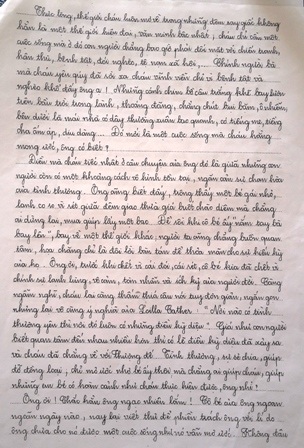 Thúc lòng, thế giới cháu luôn mơ về trong những đêm say giấc không
hẳn là một thế giới hiện đại, văn minh bậc nhất; cháu chỉ cần một
cuộc sống mà ở đó con người chẳng bao giờ phải đối mặt với chiến tranh,
hận thù, bệnh tật, đói nghèo, tệ nạn xã hội,... Chính người bà
mà cháu yêu quý đã rời xa cháu vĩnh viễn chỉ vì bệnh tật và
nghèo khó đấy ông ạ! Những cánh chim bồ câu trắng khẽ bay liệng
trên bầu trời trong lành, thoáng đãng, chẳng chút bụi bám, ô nhiễm,
bên dưới là mái nhà có đầy thương xuân bao quanh, có tiếng mẹ, tiếng
cha ấm áp, dịu dàng... Đó mới là một cuộc sống mà cháu hằng
mong ước, ông có biết?
Điều mà cháu tiếc nhất ở câu chuyện của ông đó là giữa những con
người còn có một khoảng cách vô hình tồn tại, ngăn cản sự chan hòa
của tình thương. Ông cũng biết đấy, trông thấy một bé gái nhỏ,
lạnh co ro vì rét giữa đêm giao thừa giá buốt chào diêm mà chẳng
ai dừng lại, mua giúp lấy một bao. Để rồi khi cô bé ấy
bay lên", bay về một thế giới khác, người ta cũng chẳng buồn quan
tâm, họa chăng chỉ là đôi lời bàn tán để thỏa mãn cho sự hiếu kỳ
của họ. Ông ơi, trước khi chết vì cái đói, cái rét, cô bé kia đã chết vì
chính sự lạnh lùng, vô cảm, tàn nhẫn và ích kỷ của người đời. Càng
ngẫm nghĩ, cháu lại càng thấm thía câu nói tuy đơn giản, ngắn gọn
nhưng lại vô cùng ý nghĩa của Willa Cather: "Nơi nào có tình
thương yêu thì nơi đó luôn có những điều kỳ diệu". Giá như con người
biết quan tâm đến nhau nhiều hơn thì có lẽ điều kỳ diệu đã xảy ra
và cháu đã chẳng về với Thượng đế. Tình thương, sự sẻ chia, giúp
đỡ đồng loại, chỉ mỗi việc nhỏ bé ấy thôi mà chẳng ai giúp cháu, giúp
những em bé có hoàn cảnh như cháu thực hiện được, ông nhỉ!
Ông ơi! Chắc hẳn ông ngạc nhiên lắm! Cô bé của ông ngoan
ngoãn ngày nào, nay lại viết thư để phiền trách ông với lí do
ông chưa cho nó được một cuộc sống như nó vẫn mơ ước. Không đâu